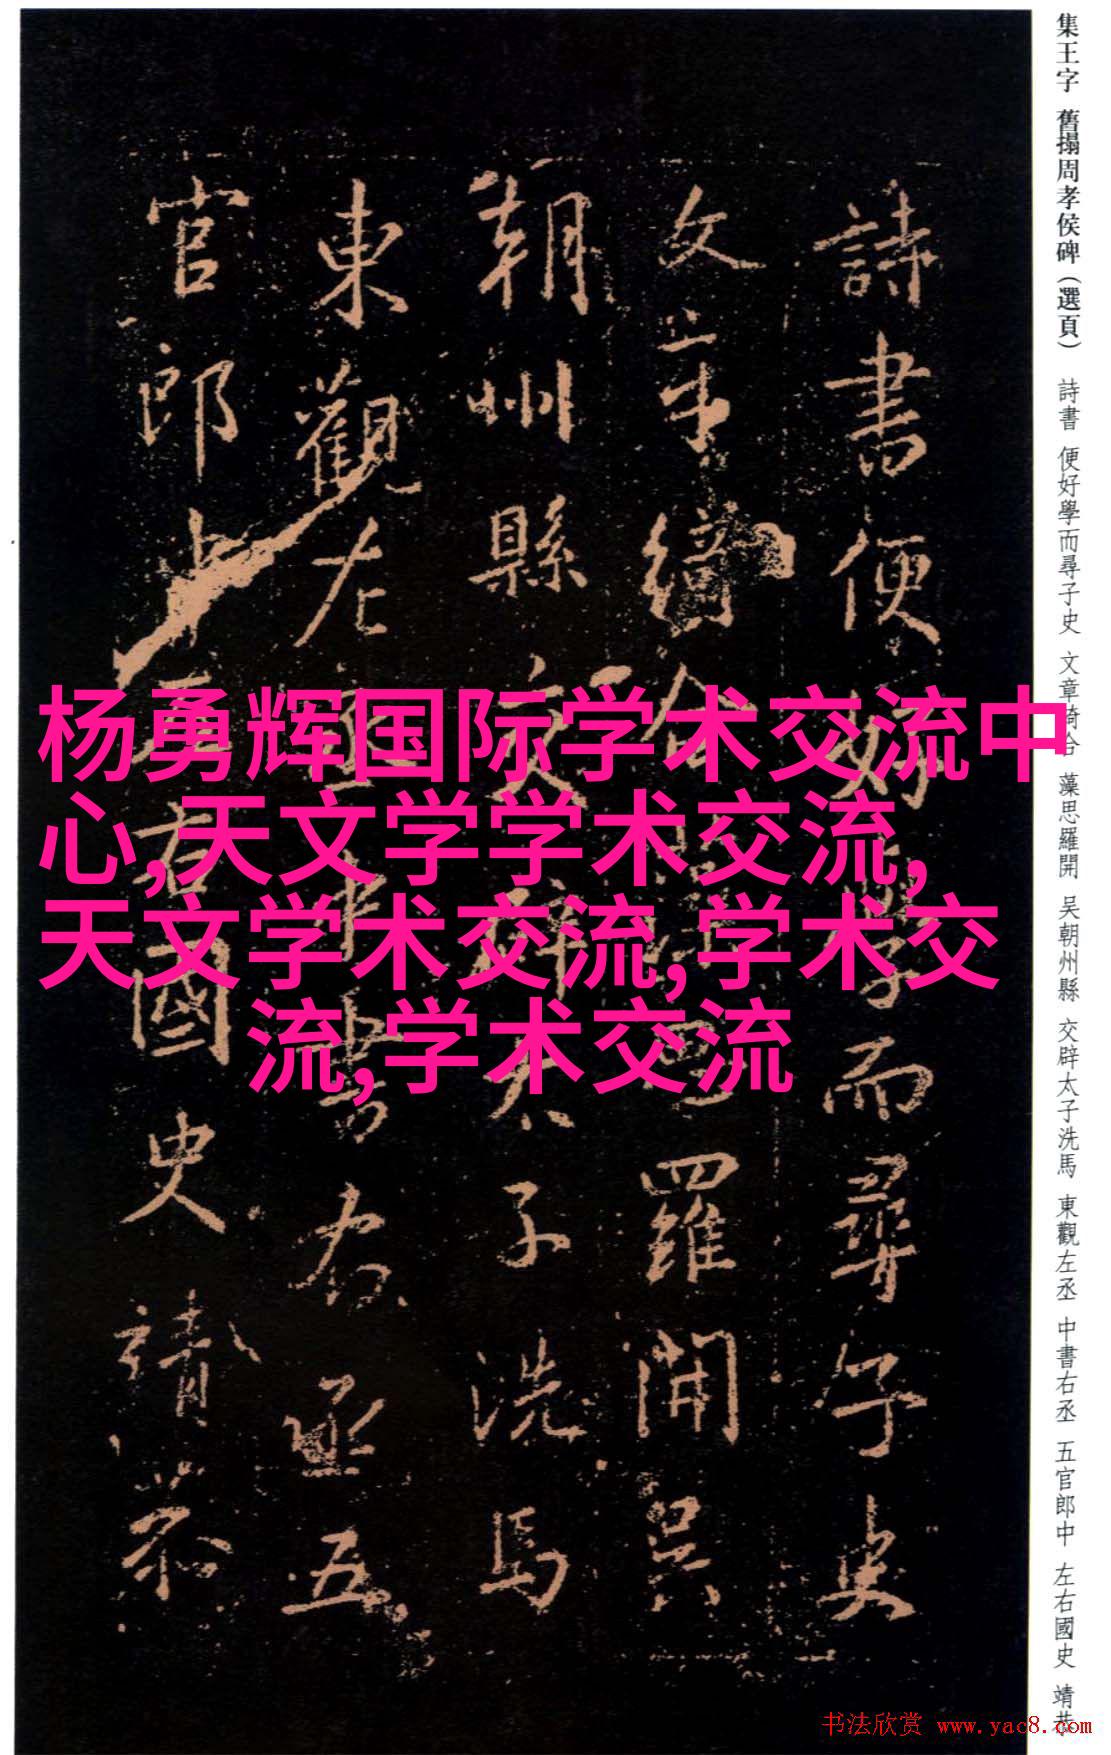 集王字 舊搨周孝侯碑(選頁) 詩書 便好學而尋子史 文章綺合 藻思羅開 吴朝州縣 交辟太子洗馬 東觀左丞 中書右丞 五官郎中 左右國史 靖恭
詩書便好學而尋子史
文章綺合
羅開吳
朝州縣交辟太子洗馬
東觀左丞中書右丞五
官郎中左右國史靖恭
杨勇辉国际学术交流中
心,天文学学术交流,
天文学术交流,学术交
流,学术交流
书法欣赏 www.yac8.com